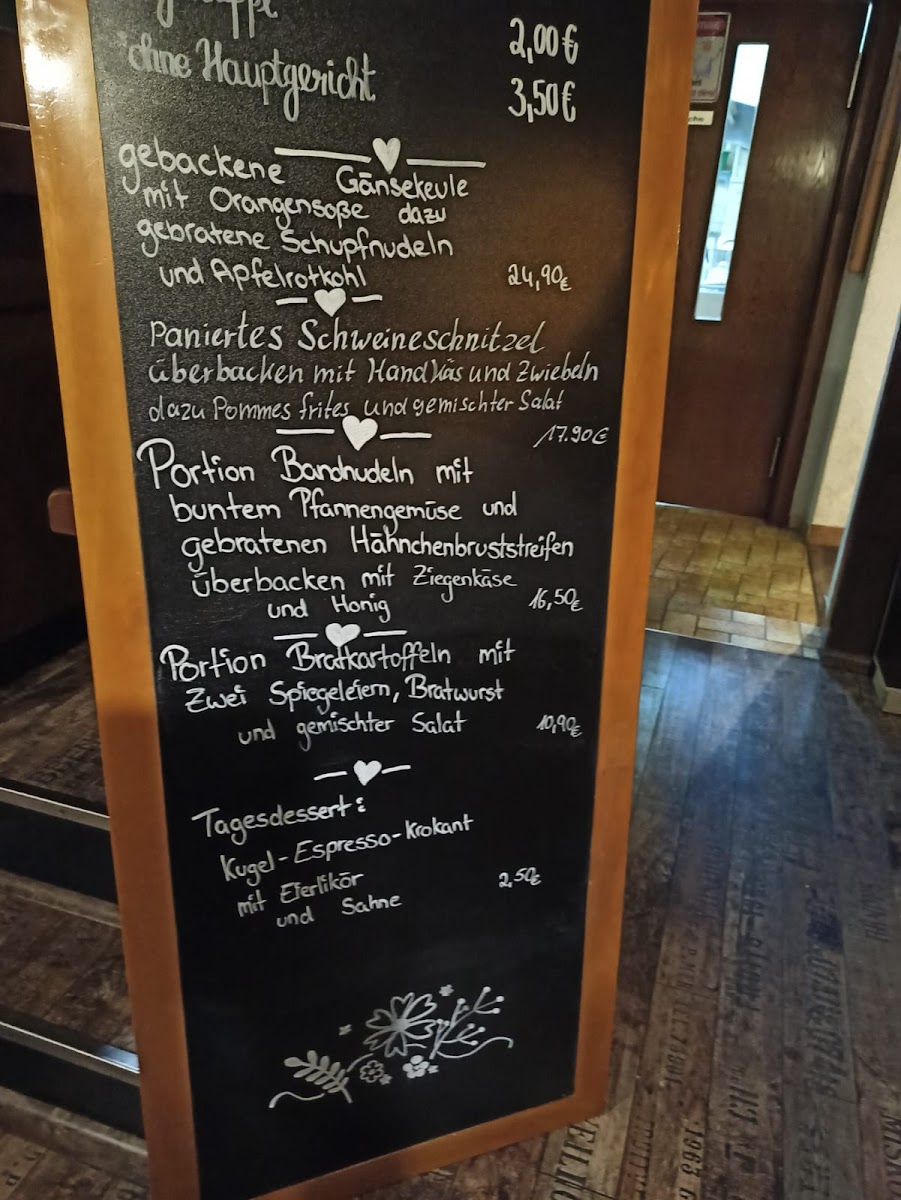 2,00€
ohne Hauptgericht 3,50€
gebackene Gänsekeule
mit Orangensoße dazu
gebratene Schupfnudeln
und Apfelrotkohl 24,90€
Paniertes Schweineschnitzel
überbacken mit Handkäs und Zwiebeln
dazu Pommes frites und gemischter Salat
17.90€
Portion Bandnudeln mit
buntem Pfannengemüse und
gebratenen Hähnchenbruststreifen
überbacken mit Ziegenkäse
und Honig 16,50€
Portion Bratkartoffeln mit
Zwei Spiegeleiern, Bratwurst
und gemischter Salat 10,90€
Tagesdessert:
Kugel-Espresso-Krokant
mit Eierlikör
und Sahne 2,50€